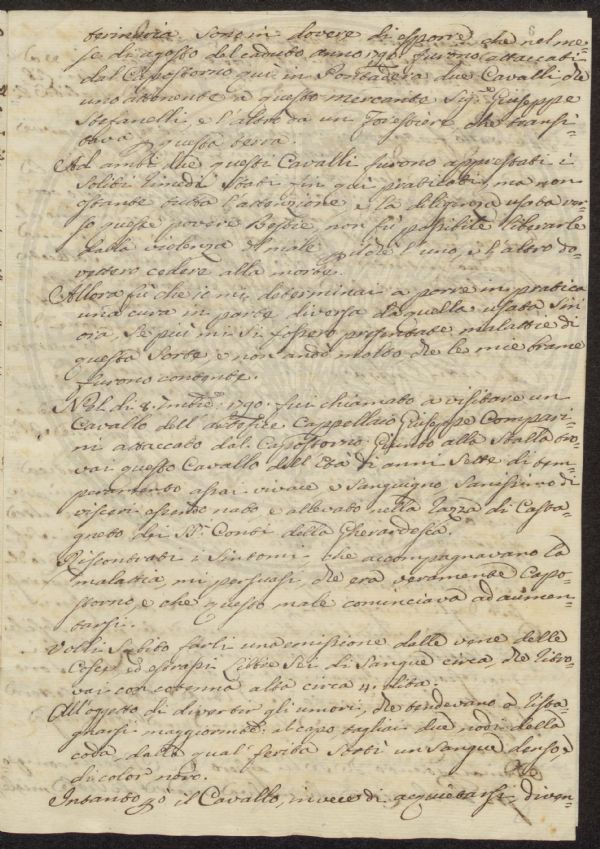 terinaria. Sono in dovere di esporre che nel me-
se di agosto del caduto anno 1790 furono attaccati
dal Capostorno quì in Pontadera due Cavalli, che
uno attenente a questo mercante Sig.e Giuseppe
Stefanelli, e l'altro da un Forestiere che transi-
tava questa terra.
Ad ambi due questi Cavalli furono apprestati i
soliti rimedi stati fin quì praticati, ma non
ostante tutta l'attenzione, e la diligenza usata ver-
so queste povere Bestie, non fù possibile liberarle
dalla violenza del male l'uno, e l'altro do-
vettero cedere alla morte.
Allora fù che io mi determinai a porre in pratica
una cura in parte diversa da quella usata sin
ora, se più mi si fossero presentate malattie di
questa sorte, e non andò molto che le mie brame
furono contente.
Nel dì 8. 1790. fui chiamato a visitare un
Cavallo dell'artefice Cappellaio Giuseppe Compari-
ni attaccato dal Capostorno. Giunto alla stalla tro-
vai questo Cavallo dell'età di anni sette di tem-
peramento assai vivace, e sanguigno sanissimo di
visceri essendo nato, e allevato nella razza di Casta-
gneto dei SS.ri Conti della Gherardesca.
Riscontrati i sintomi, che accompagnavano la
malattia, mi persuasi, che era veramente Capo-
storno, e che questo male cominciava ad aumen-
tarsi.
Volli subito farli una emissione dalle vene delle
Cosce, ed estrassi Libbre sei di sangue circa che ritro-
vai con cotenna alta circa 4. dita.
All'oggetto di divertir gli umori, che tendevano a rista-
gnarsi maggiormente il capo tagliai due nodi della
coda, dalla qual ferita sortì un sangue denso, e
di color nero.
Intanto il Cavallo, invece di acquietarsi, diven-